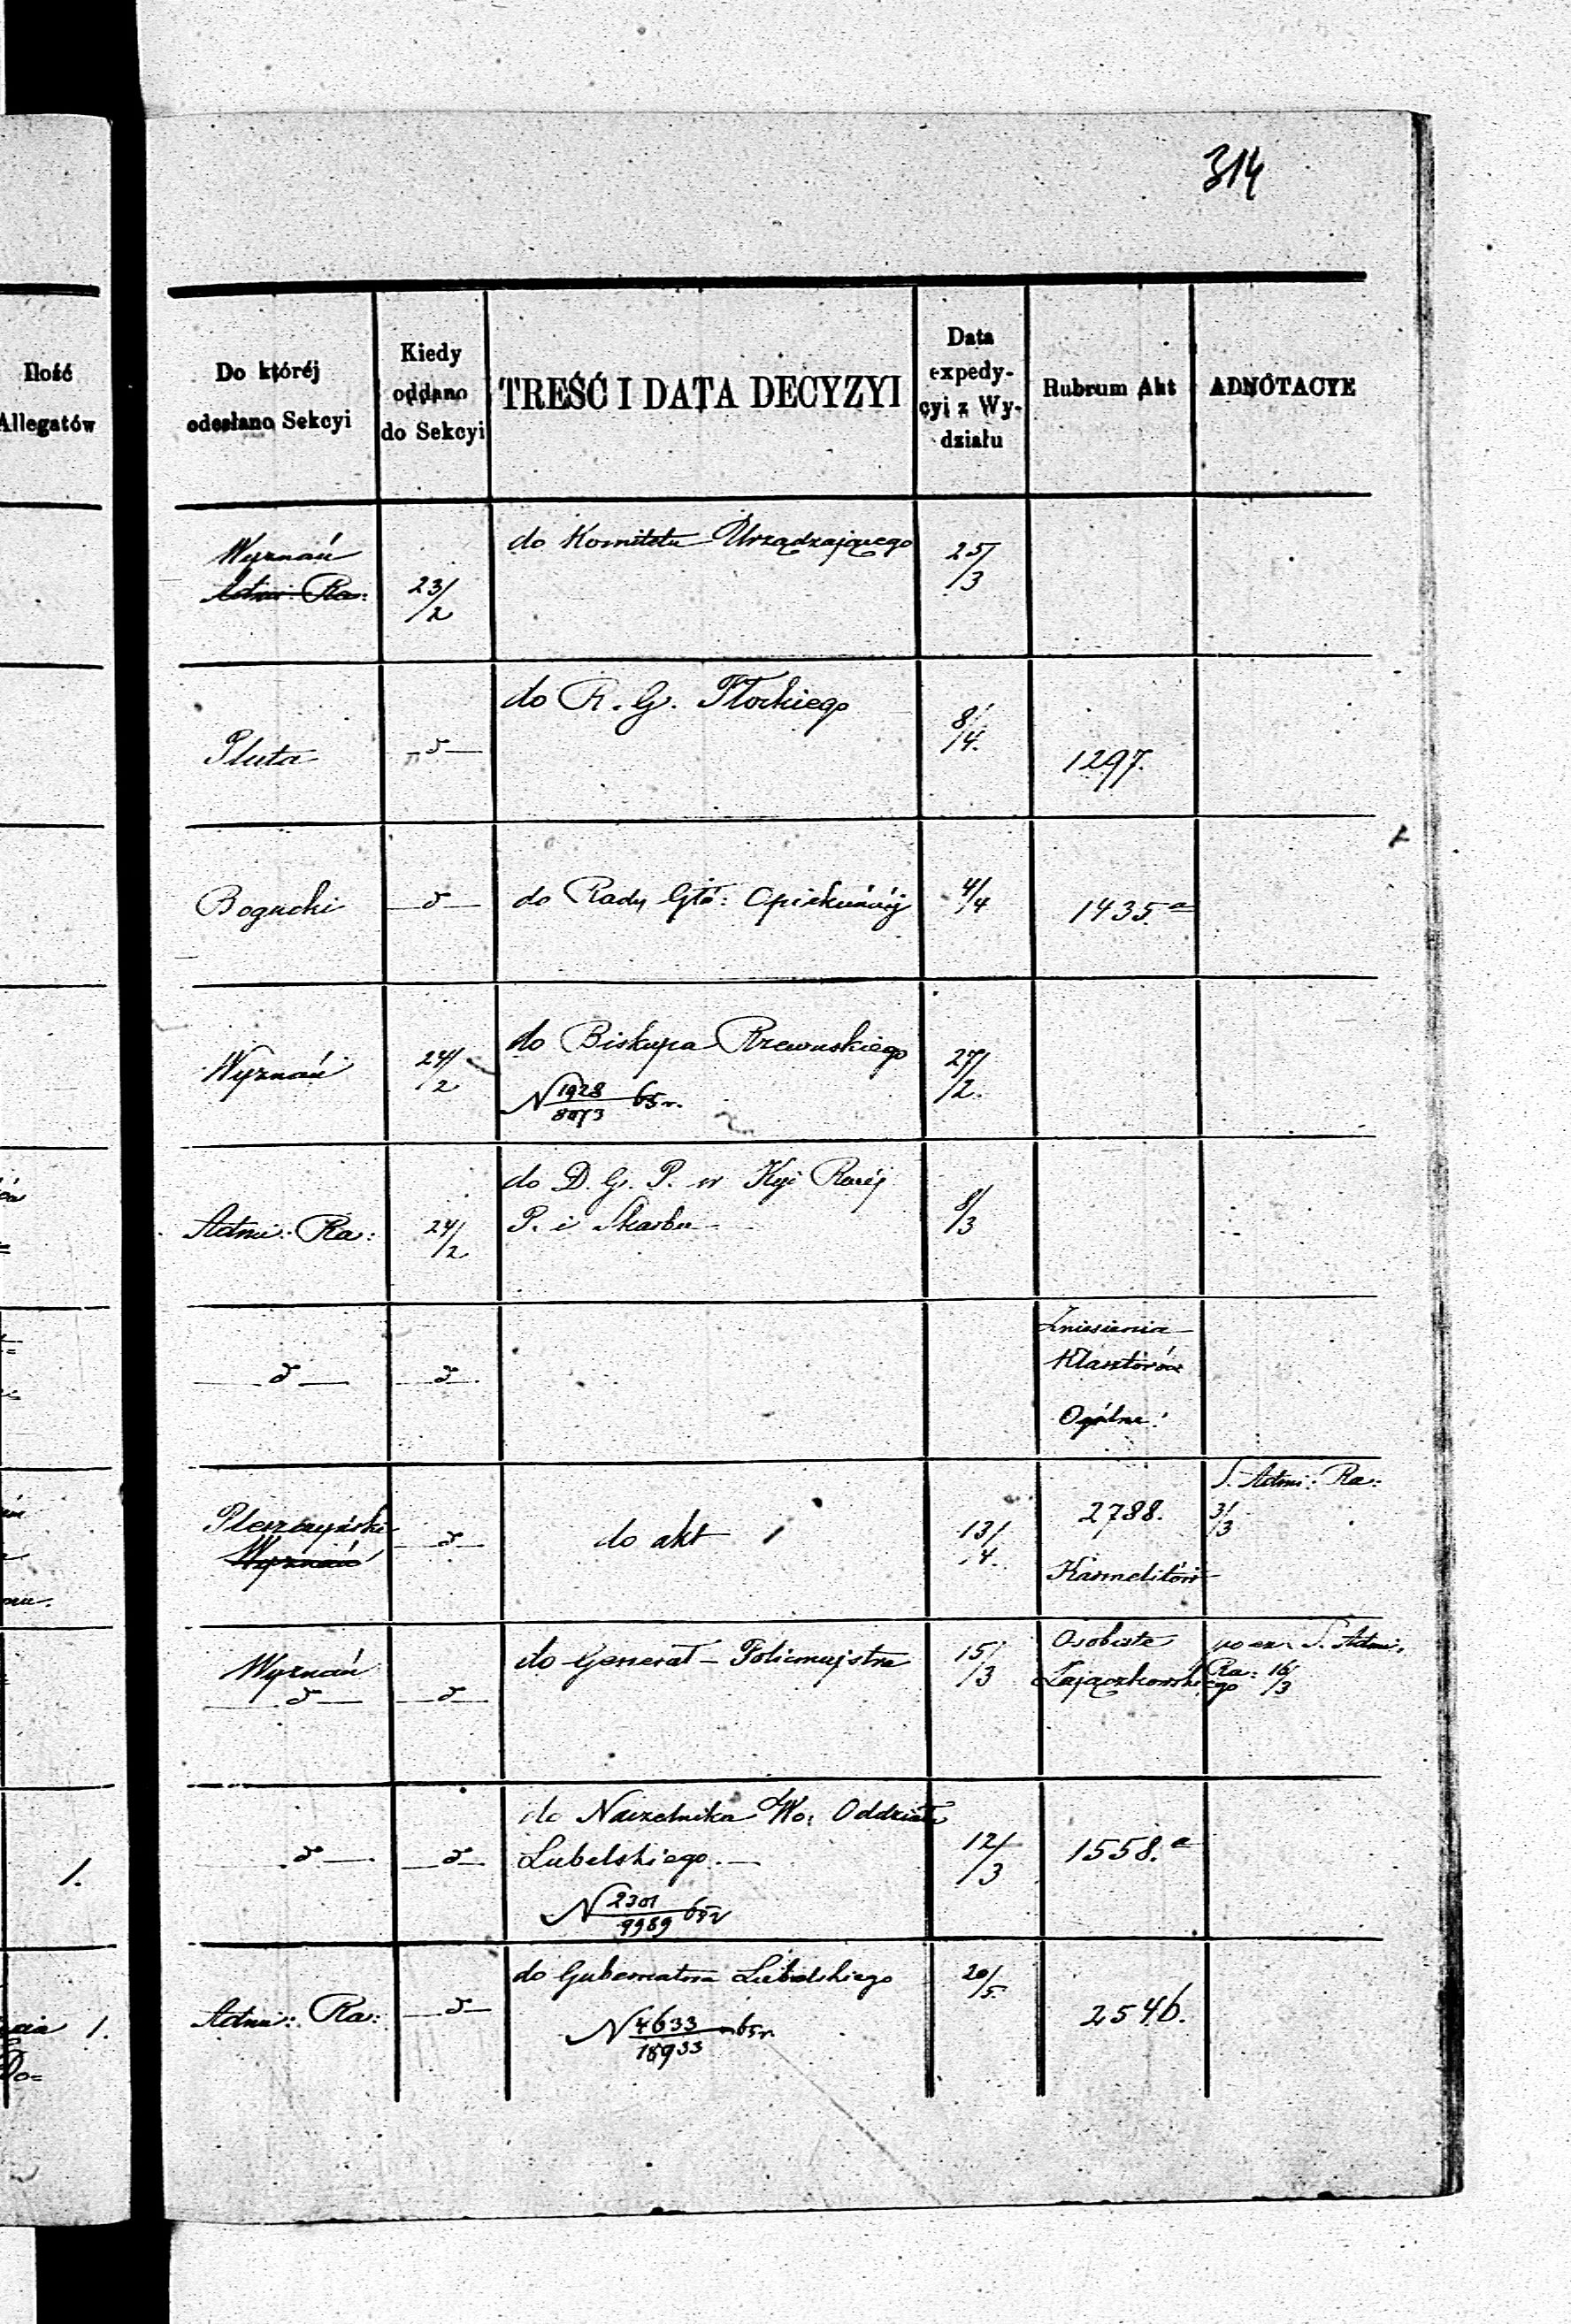 314
Ilość
Allegatów
Do któréj
odesłano Sekcyi
Kiedy
oddano
do Sekcyi
TREŚĆ I DATA DECYZYI
Data
expedy-
cyi z Wy-
działu
Rubrum Akt
ADNOTACYE
Wyznań
Admi: Ra:
23/2
do Komitetu Urządzającego
25/3
Pluta
do R. G. Płockiego
8/4.
1297.
Bogucki
do Rady Głó: Opiekuńczéj
4/4
1435.a
Wyznań
24/2
do Biskupa Rzewuskiego
N 1928/8073 65 r.
27/2.
Admi: Ra:
24/2
do D. G. P. w Kyi Rwéj
P. i Skarbu
8/3
Zniesienia
Klasztorów
Ogólne.
Pleszczyński
Wyznań
do akt
13/4.
2788.
Karmelitów
S. Admi: Ra:
3/3
Wyznań
do Generał-Policmajstra
15/3
Osobiste
Zajączkowskiego
S. Admi.
Ra: 16/3
do Naczelnika Wo: Oddziału
Lubelskiego.
N 2301/9989 65 r
12/3
1558.a
1.
Admi: Ra:
do Gubernatora Lubelskiego
N 4633/18933 65 r.
20/5.
2546.
1.